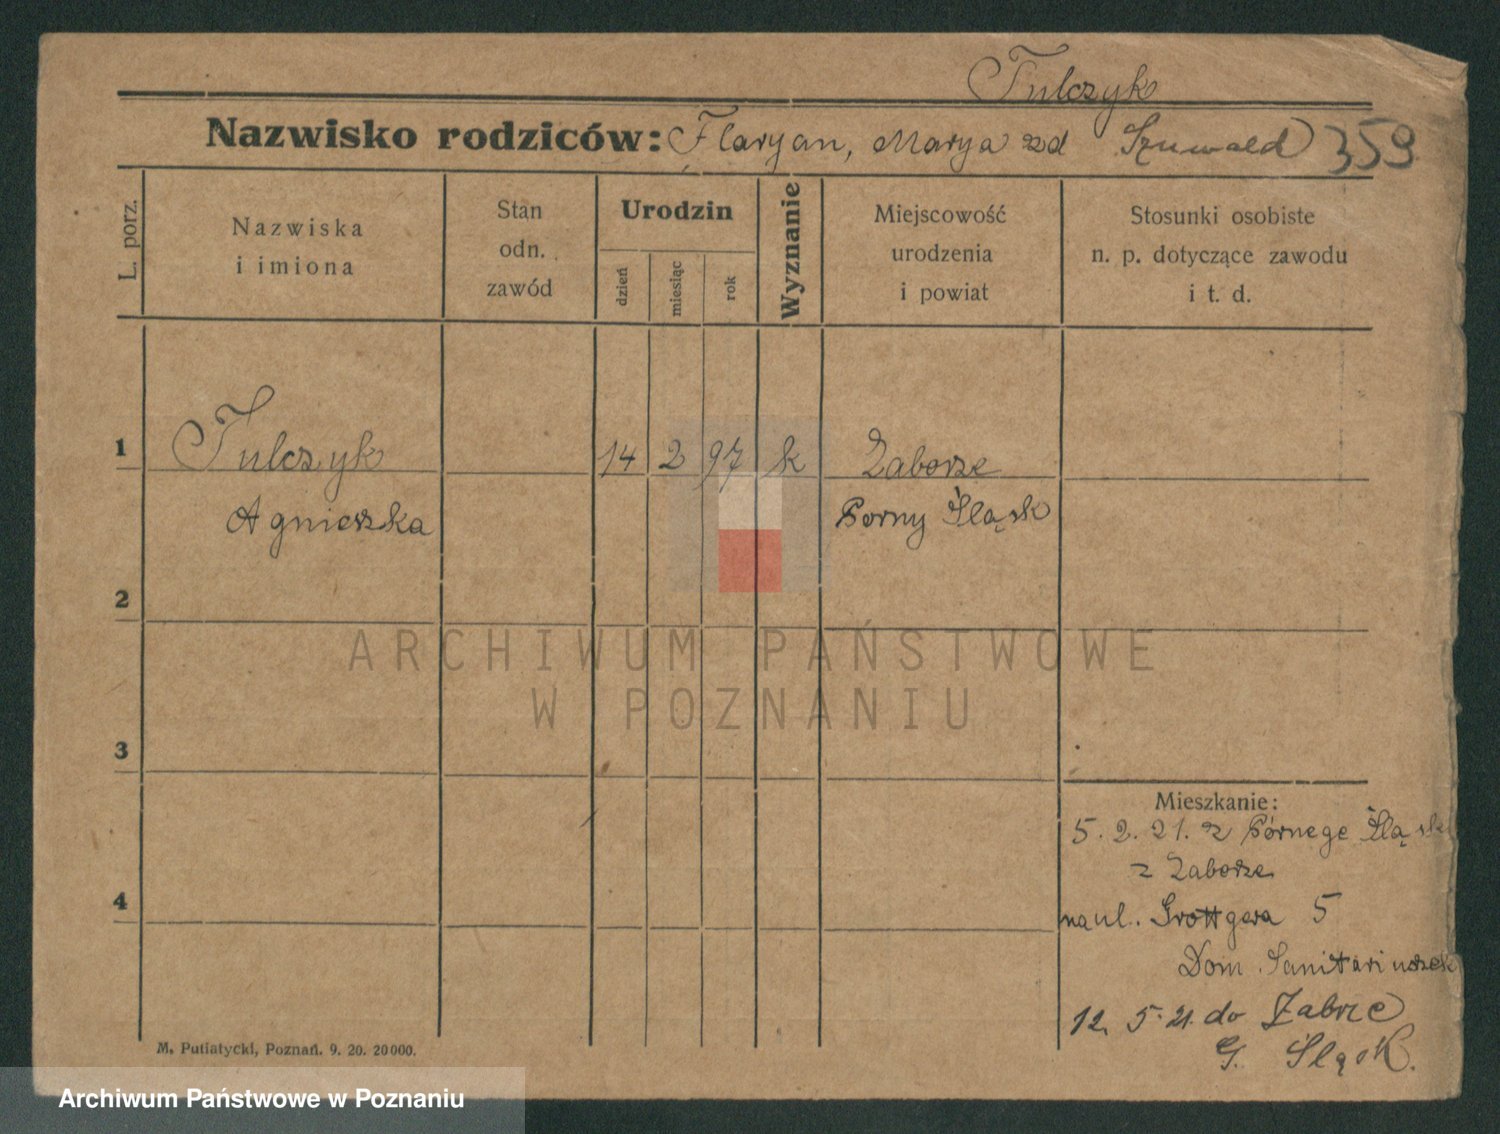 Tulczyk
Nazwisko rodziców: Floryan, Marya zd Szuwald 359
L. porz.
Nazwiska
i imiona
Stan
odn.
zawód
Urodzin
dzień
miesiąc
rok
Wyznanie
Miejscowość
urodzenia
i powiat
Stosunki osobiste
n. p. dotyczące zawodu
i t. d.
1 Tulczyk 14 2 97 k Zaborze
Agnieszka Górny Śląsk
2
3
4
Mieszkanie:
5. 2. 21. z Górnego Śląska
z Zaborze
na ul. Grottgera 5
Dom Sanitariuszek
12. 5. 21. do Zabrze
G. Śląsk.
M. Putiatycki, Poznań. 9. 20. 20000.
ARCHIWUM PAŃSTWOWE
W POZNANIU
Archiwum Państwowe w Poznaniu